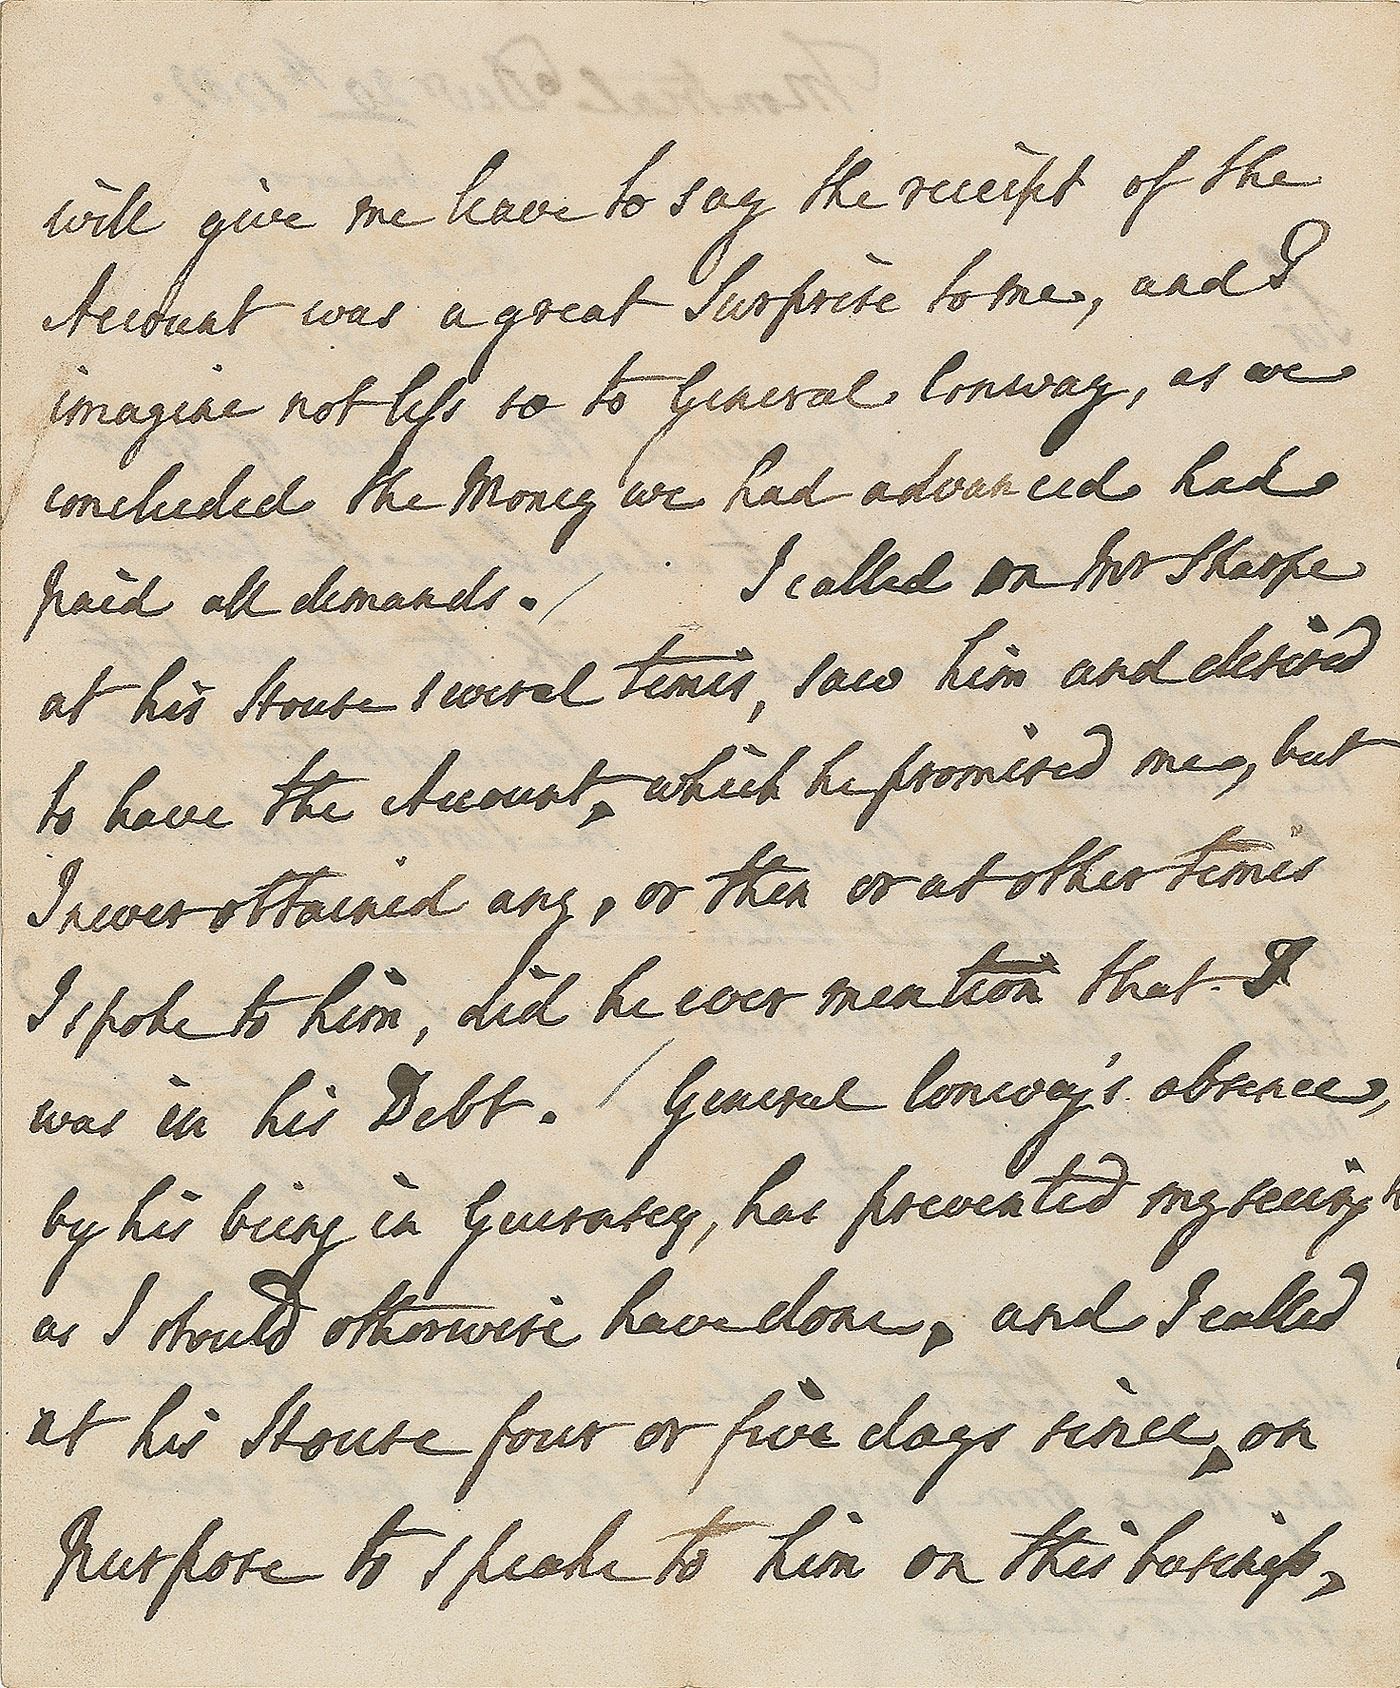 will give me leave to say the receipt of the
Account was a great Surprise to me, and I
imagine not less so to General Conway, as we
concluded the Money we had advanced had
paid all demands. / I called on Mr Sharpe
at his House several times, saw him and desired
to have the Account, which he promised me, but
I never attained any, or then or at other times
I spoke to him, did he ever mention that I
was in his Debt. / General Conway's absence,
by his being in Guernsey, has prevented my seeing
as I should otherwise have done, and I called
at his House four or five days since, on
purpose to speak to him on this business,